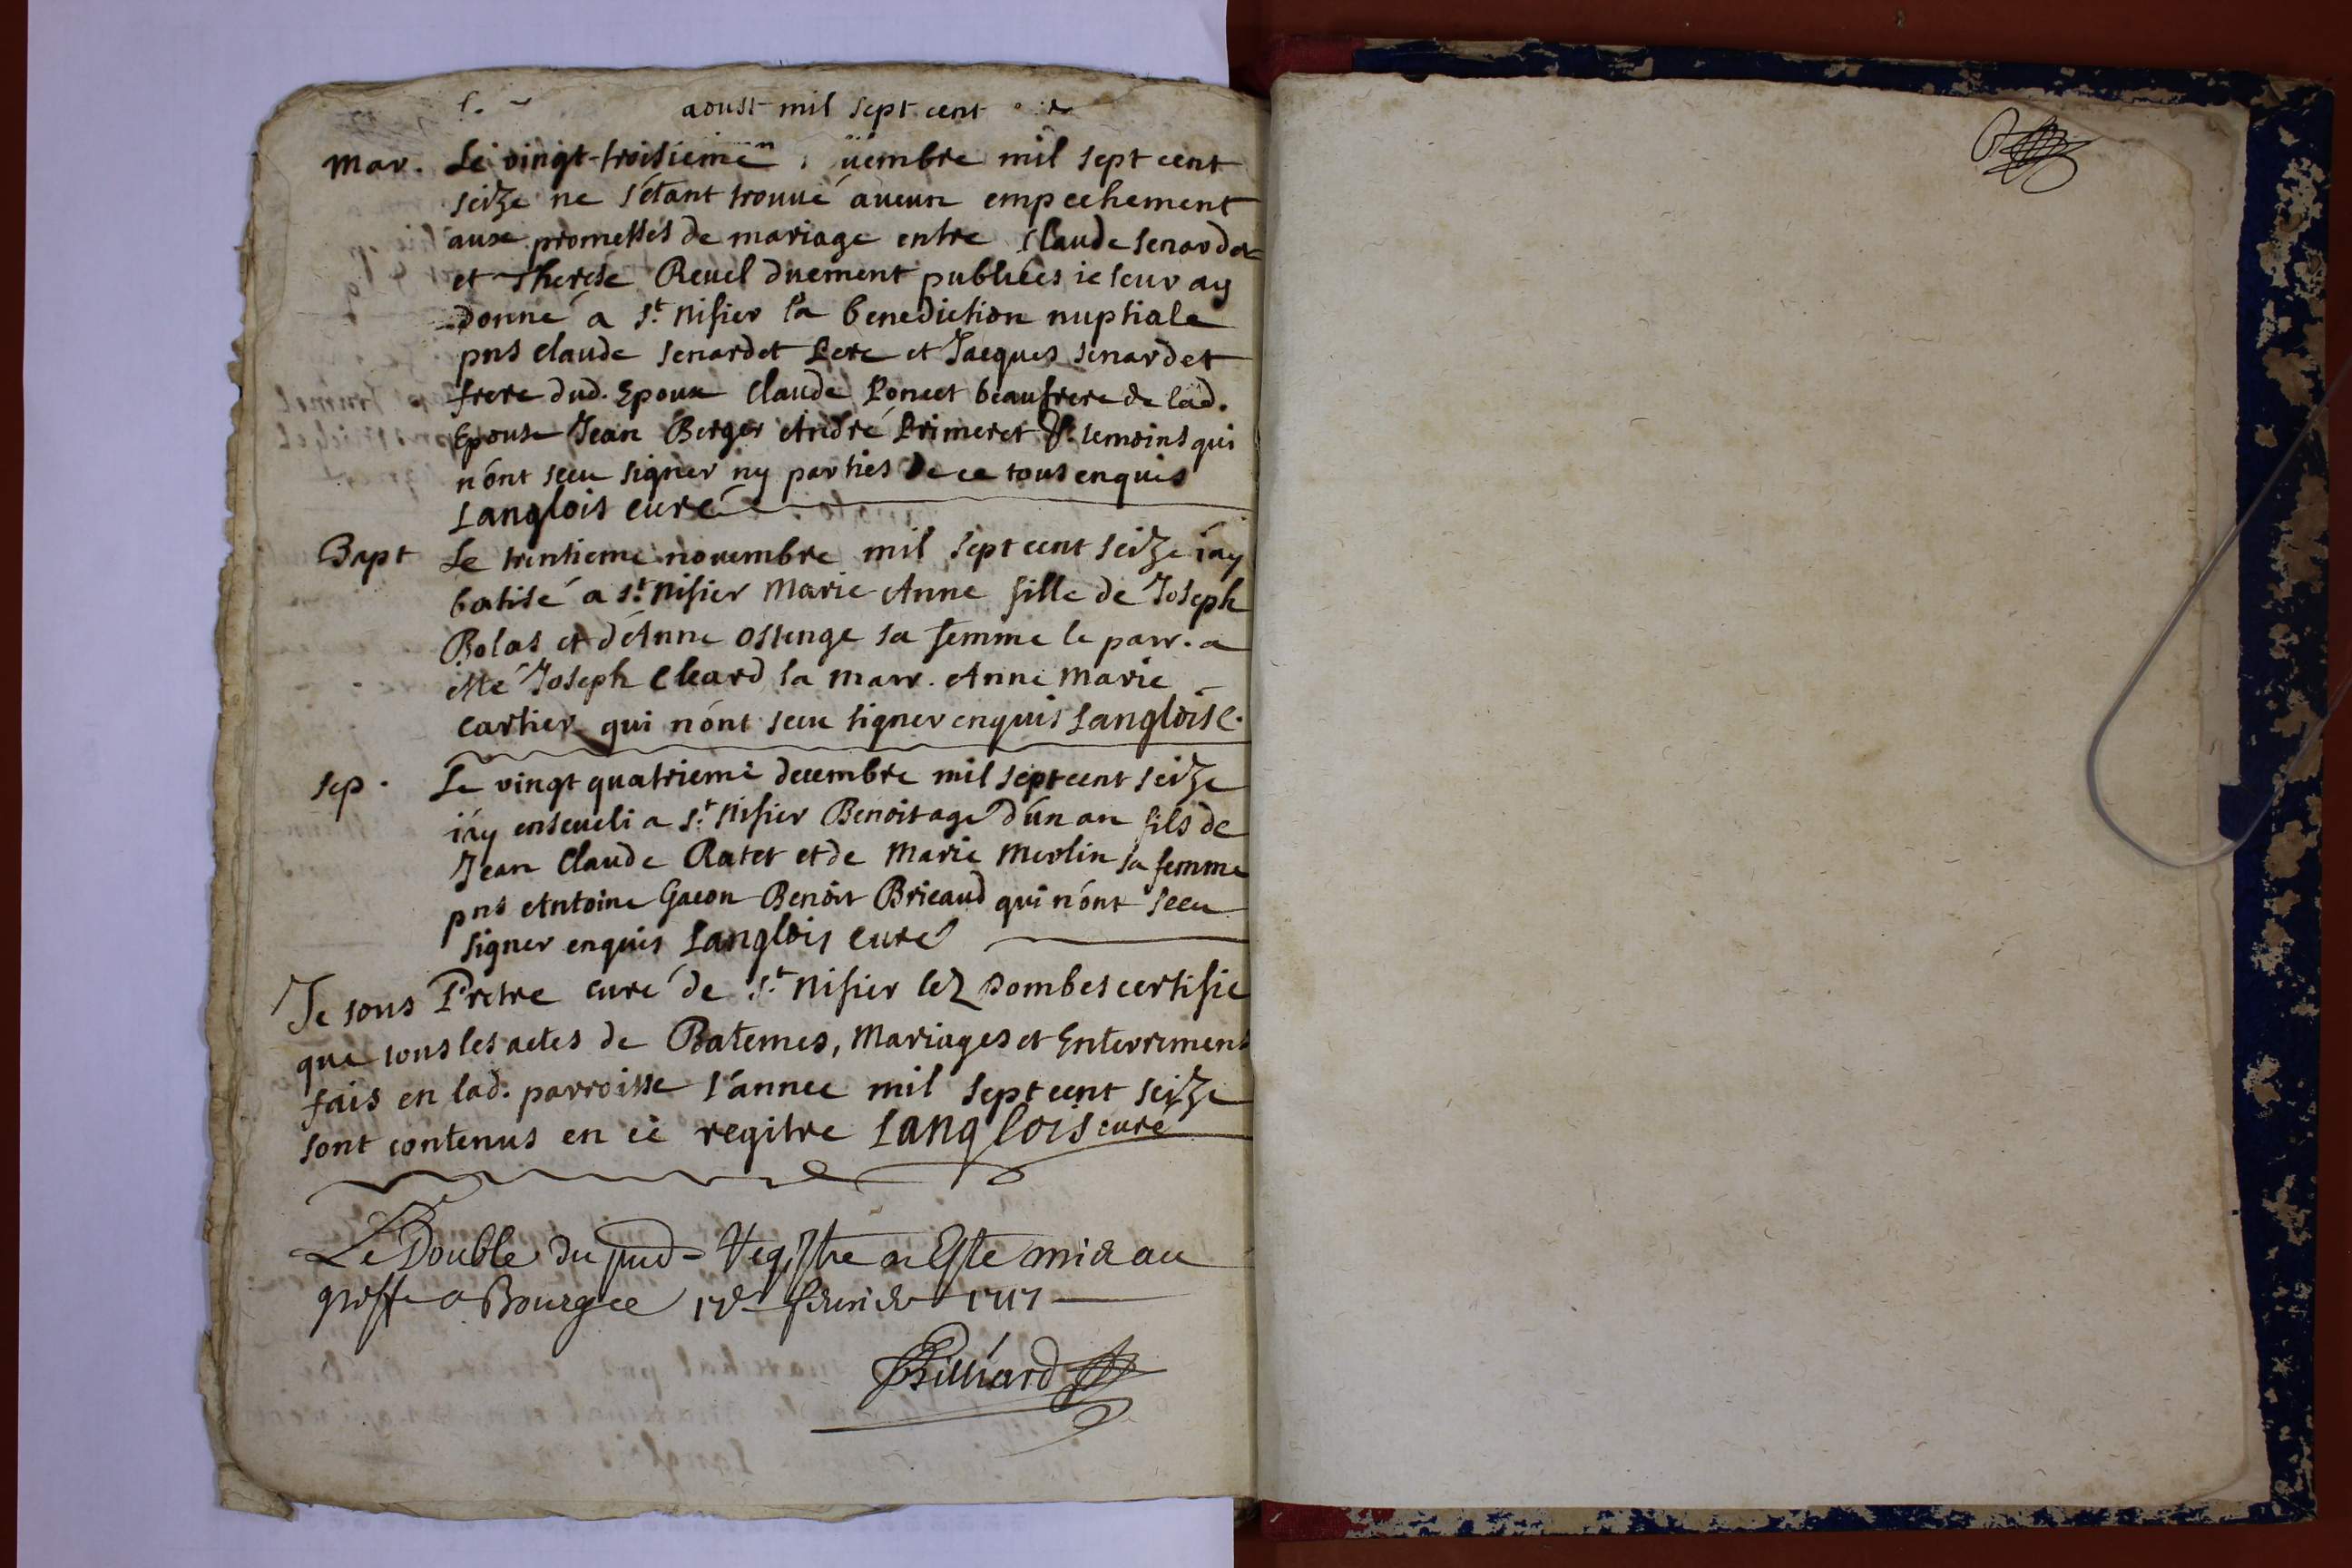 aoust mil sept cent
mar. Le vingt-troisieme uembre mil sept cent
seize ne s'étant trouué aucun empechement
aux promesses de mariage entre Claude Senardet
et Therese Reuel duement publiées ie leur ay
donné a St. Nisier la benediction nuptiale
pns Claude Senardet Pere et Jacques Senardet
frere dud. Epoux Claude Poncet beaufrere de lad.
Epouse Jean Berger André Primeret temoins qui
n'ont sceu signer ny parties de ce tous enquis
Langlois curé
Bapt Le trentieme nouembre mil sept cent seize i'ay
batisé a St. Nisier Marie Anne fille de Joseph
Bolas et d'Anne Ostenge sa femme le parr. a
esté Joseph Cleard la marr. Anne Marie
Cartier qui n'ont sceu signer enquis Langlois c.
sep. Le vingt quatrieme decembre mil sept cent seize
i'ay enseueli a St. Nisier Benoit agé d'un an fils de
Jean Claude Ratet et de Marie Merlin sa femme
pns Antoine Gacon Benoit Bricaud qui n'ont sceu
signer enquis Langlois curé
Je sous Pretre curé de St. Nisier lez Dombes certifie
que tous les actes de Batemes, Mariages et Enterremens
fais en lad. parroisse l'annee mil sept cent seize
sont contenus en ce regitre Langlois curé
Le Double du pnd Registre a Esté mis au
greffe a Bourg ce feurier 1717
Billiard